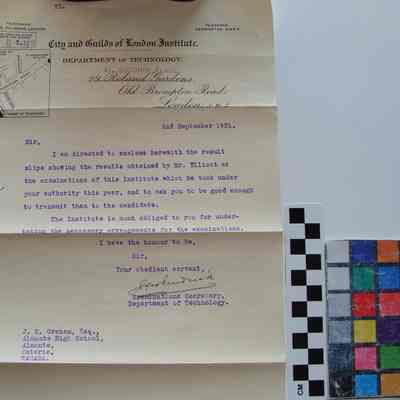 City and Guilds of London Institute.
DEPARTMENT OF TECHNOLOGY.
29 Roland Gardens
Old Brompton Road
London, S.W.7
2nd September 1931.
Sir,
I am directed to enclose herewith the result
slips showing the results obtained by Mr. Elliott at
the examinations of this Institute which he took under
your authority this year, and to ask you to be good enough
to transmit them to the candidate.
The Institute is much obliged to you for under-
taking the necessary arrangements for the examinations.
I have the honour to be,
Sir,
Your obedient servant,
Examinations Secretary,
Department of Technology.
Esq.,
Almonte High School,
Almonte,
Ontario,
CANADA.
CM